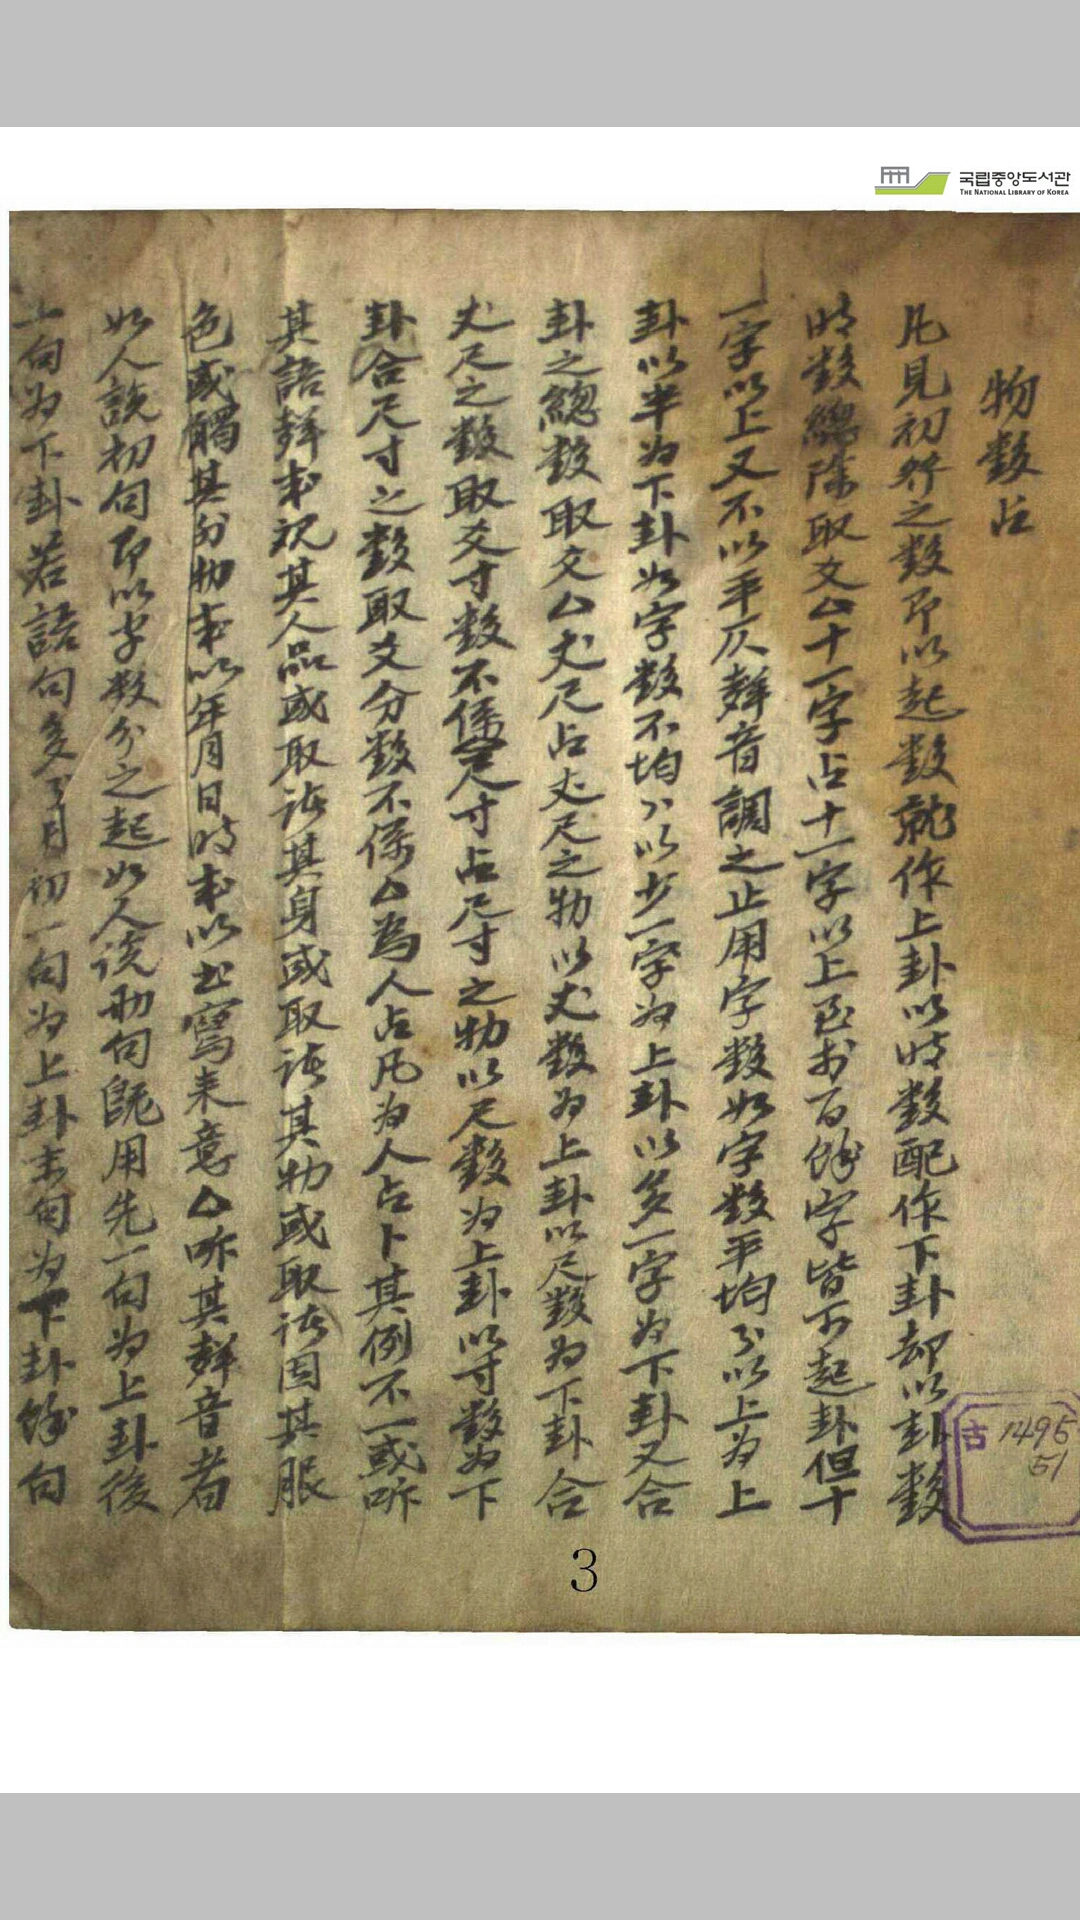 국립중앙도서관
THE NATIONAL LIBRARY OF KOREA
物数占
凡見初行之数即以起数就作上卦以时数配作下卦却以卦数
时数總除取爻△十一字占十一字以上至於百餘字皆可起卦但十
一字以上又不以平仄聲音調之止用字数如字数平均分以上为上
卦以半为下卦如字数不均以少一字为上卦以多一字为下卦又合
卦之總数取爻△丈尺占丈尺之物以丈数为上卦以尺数为下卦合
丈尺之数取爻寸数不係尺寸占尺寸之物以尺数为上卦以寸数为下
卦合尺寸之数取爻分数不係△為人占凡为人占卜其例不一或听
其語聲或視其人品或取诸其身或取诸其物或取诸因其服
色或觸其外物或以年月日时或以书寫来意△听其聲音者
如人說初句即以字数分之起如人说両句既用先一句为上卦後
一句为下卦若語句多 用初一句为上卦末句为下卦餘句
古 1495
51
3